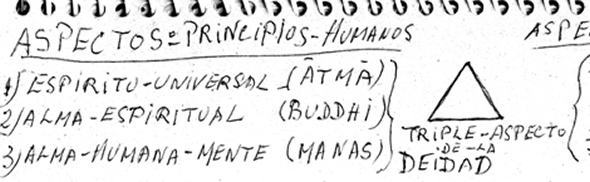 ASPECTOS=PRINCIPIOS-HUMANOS
1) ESPÍRITU-UNIVERSAL (ĀTMĀ)
2) ALMA-ESPIRITUAL (BUDDHI)
3) ALMA-HUMANA-MENTE (MANAS)
TRIPLE-ASPECTO
DE-LA
DEIDAD
ASPE